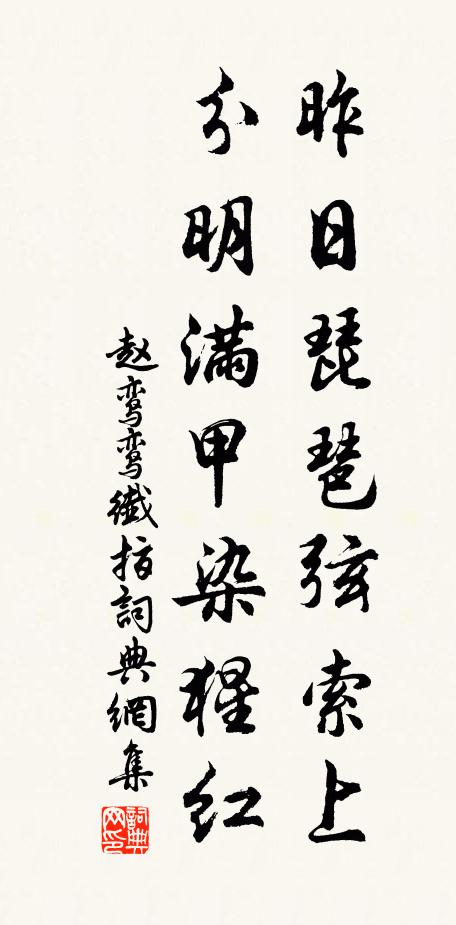 昨日琵琶弦索上
分明满甲染猩红
赵鸾鸾纖指詞典網集
詞典
网印